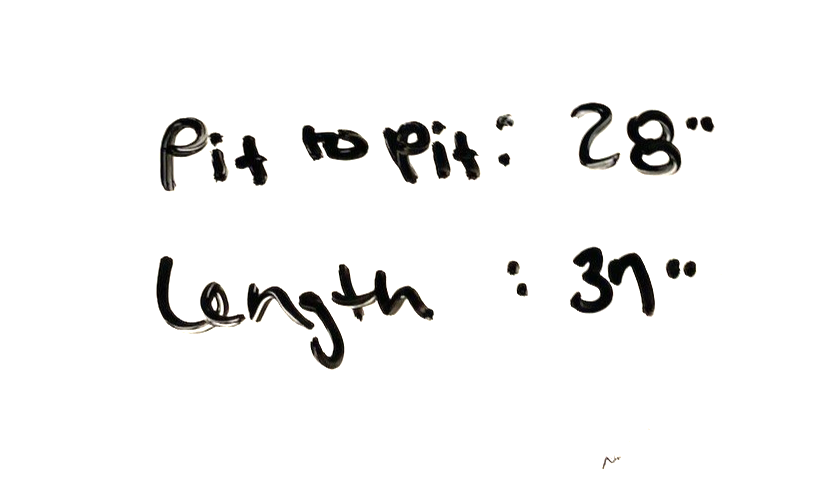 Pit to Pit : 28"
Length : 37"